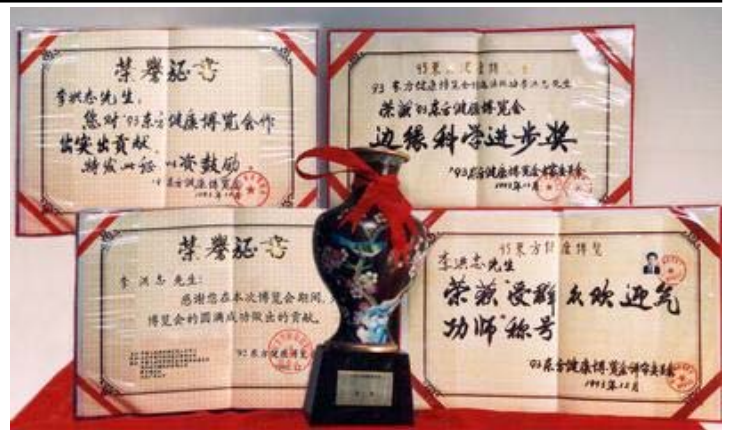 荣誉证书
李洪志先生，
您对'93东方健康博览会作
出突出贡献，
特发此证 以资鼓励。
'93东方健康博览会
93东方健康博览
荣获'93东方健康博览会
边缘科学进步奖
'93东方健康博览会
1993年12月
荣誉证书
李洪志 先生:
感谢您在本次博览会期间,
博览会的圆满成功做出的贡献。
'92东方健康博览会
93东方健康博览
李洪志先生
荣获"受群众欢迎气
功师"称号
93东方健康博览会评审委员会
1993年12月